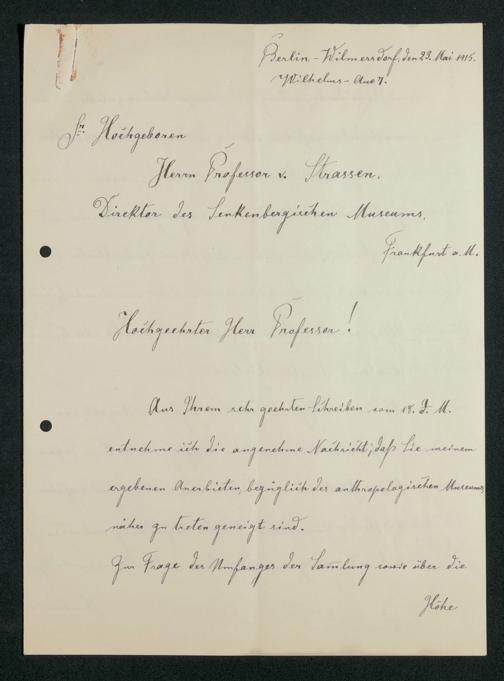 Berlin-Wilmersdorf, den 23. Mai 1915.
Wilhelms-Aue 7.
Sr. Hochgeboren
Herrn Professor v. Strassen.
Direktor des Senkenbergischen Museums.
Frankfurt a. M.
Hochgeehrter Herr Professor!
Aus Ihrem sehr geehrten Schreiben vom 18. d. M.
entnehme ich die angenehme Nachricht, daß Sie meinem
ergebenen Anerbieten, bezüglich des anthropologischen Museums,
näher zu treten geneigt sind.
Zur Frage des Umfanges der Samlung sowie über die
Höhe